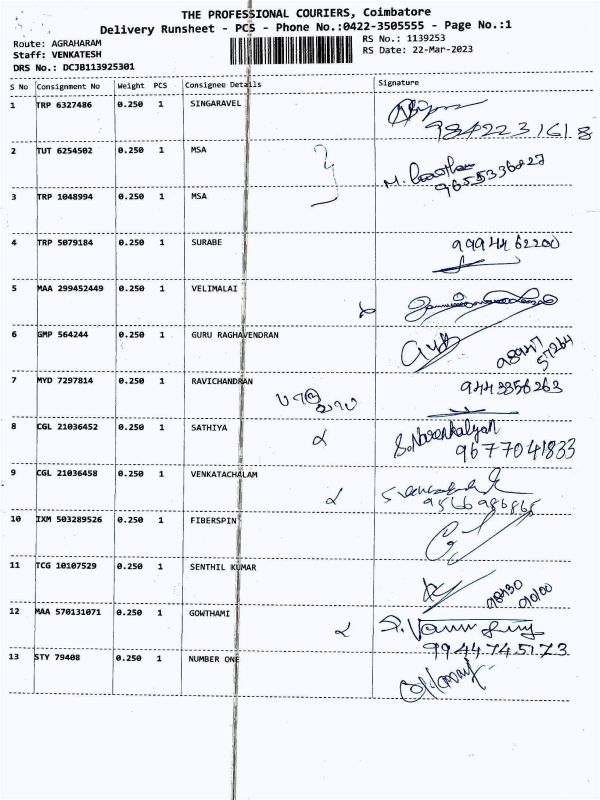 THE PROFESSIONAL COURIERS, Coimbatore
Delivery Runsheet - PCS - Phone No.:0422-3505555 - Page No.:1
Route: AGRAHARAM
RS No.: 1139253
Staff: VENKATESH
RS Date: 22-Mar-2023
DRS No.: DCJB113925301
S No Consignment No Weight PCS Consignee Details Signature
1 TRP 6327486 0.250 1 SINGARAVEL
9842231618
2 TUT 6254502 0.250 1 MSA
9655336827
3 TRP 1048994 0.250 1 MSA
4 TRP 5079184 0.250 1 SURABE 9994462200
5 MAA 299452449 0.250 1 VELIMALAI
6 GMP 564244 0.250 1 GURU RAGHAVENDRAN
98947 57264
7 MYD 7297814 0.250 1 RAVICHANDRAN 9443356263
8 CGL 21036452 0.250 1 SATHIYA S.Narenkalyan
9677041833
9 CGL 21036458 0.250 1 VENKATACHALAM
9566986865
10 IXM 503289526 0.250 1 FIBERSPIN
11 TCG 10107529 0.250 1 SENTHIL KUMAR
98430 90100
12 MAA 570131071 0.250 1 GOWTHAMI
9944745173
13 STY 79408 0.250 1 NUMBER ONE